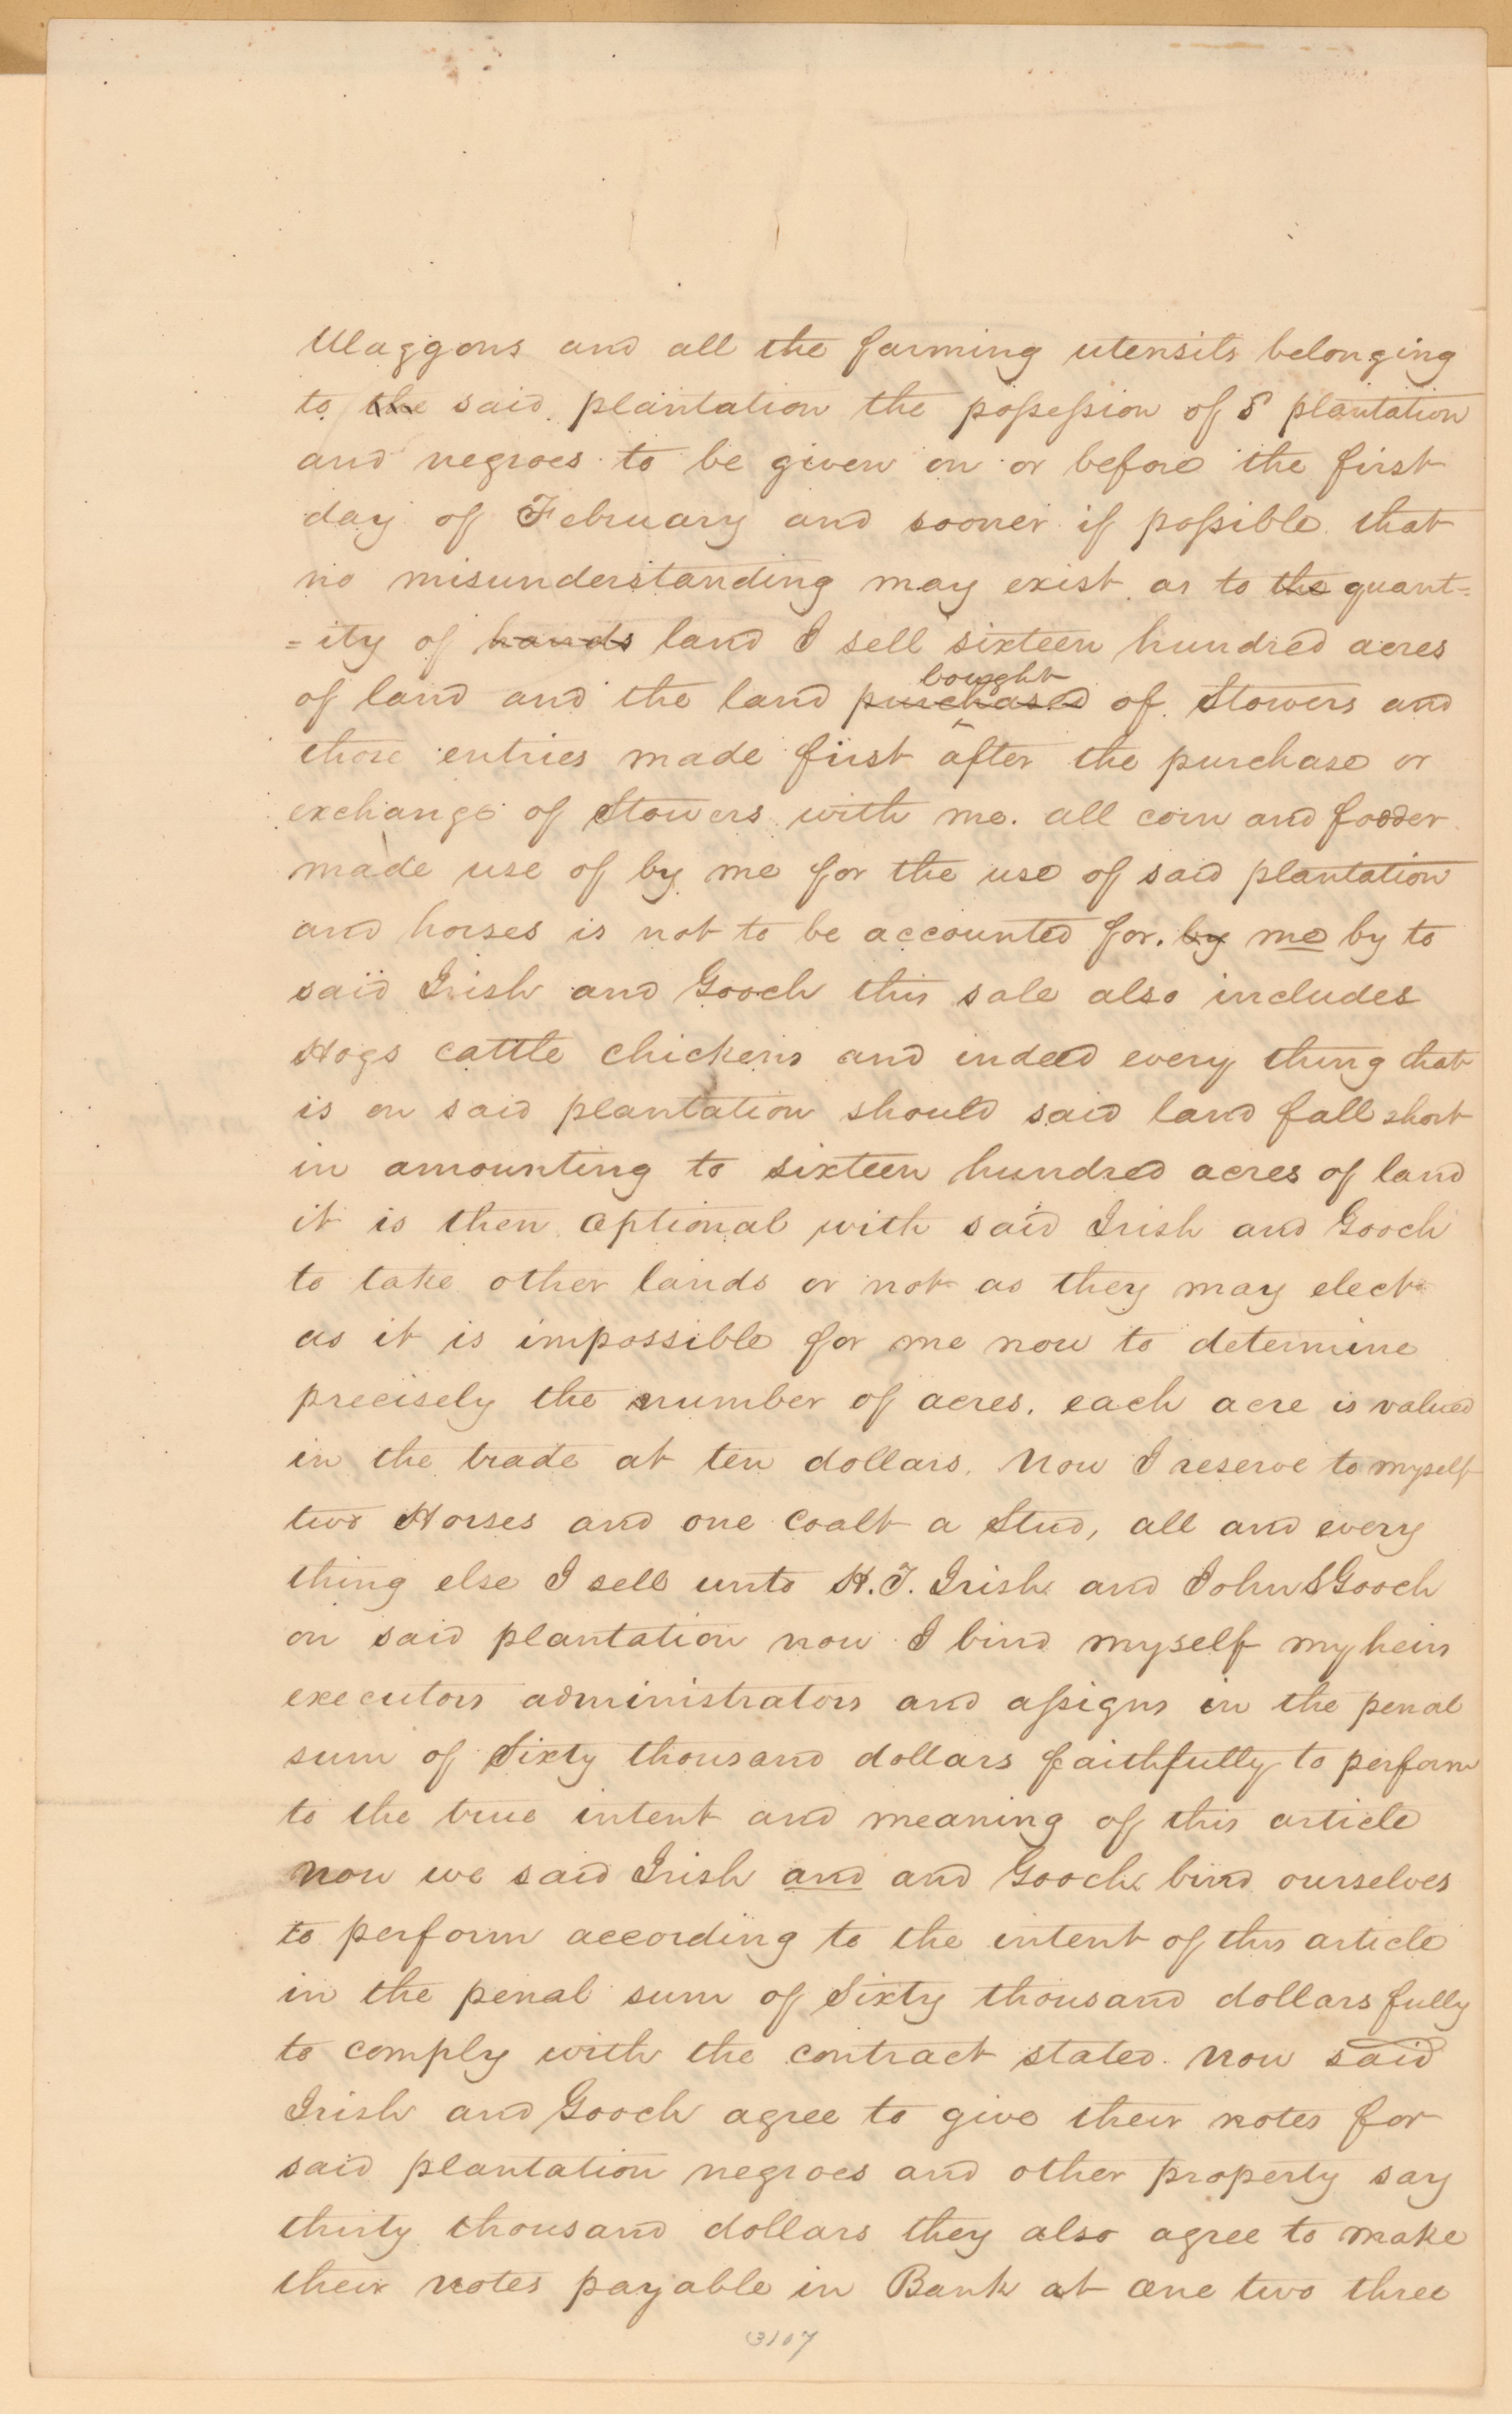 Waggons and all the farming utensils belonging
to the said plantation the possession of S plantation
and negroes to be given on or before the first
day of February and sooner if possible that
no misunderstanding may exist as to the quant=
=ity of hands land I sell sixteen hundred acres
bought
of land and the land purchased of Stowers and
those entries made first after the purchase or
exchange of Stowers with me. all corn and fodder
made use of by me for the use of said plantation
and horses is not to be accounted for. by me by to
said Irish and Gooch this sale also includes
Hogs cattle chickens and indeed every thing that
is on said plantation should said land fall short
in amounting to sixteen hundred acres of land
it is then optional with said Irish and Gooch
to take other lands or not as they may elect
as it is impossible for me now to determine
precisely the number of acres. each acre is valued
in the trade at ten dollars. Now I reserve to myself
two Horses and one coalt a Stud, all and every
thing else I sell unto H. T. Irish and John S Gooch
on said plantation now I bind myself my heirs
executors administrators and assigns in the penal
sum of Sixty thousand dollars faithfully to perform
to the true intent and meaning of this article
Now we said Irish and and Gooch bind ourselves
to perform according to the intent of this article
in the penal sum of Sixty thousand dollars fully
to comply with the contract stated. Now said
Irish and Gooch agree to give their notes for
said plantation negroes and other property say
thirty thousand dollars they also agree to make
their notes payable in Bank at one two three
3107